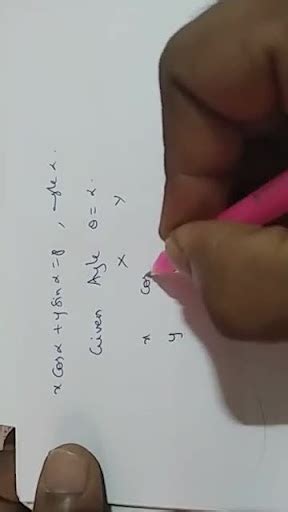 x Cosα + y Sinα = P , angle α.
Given Angle θ = α.
X Y
x cos
y